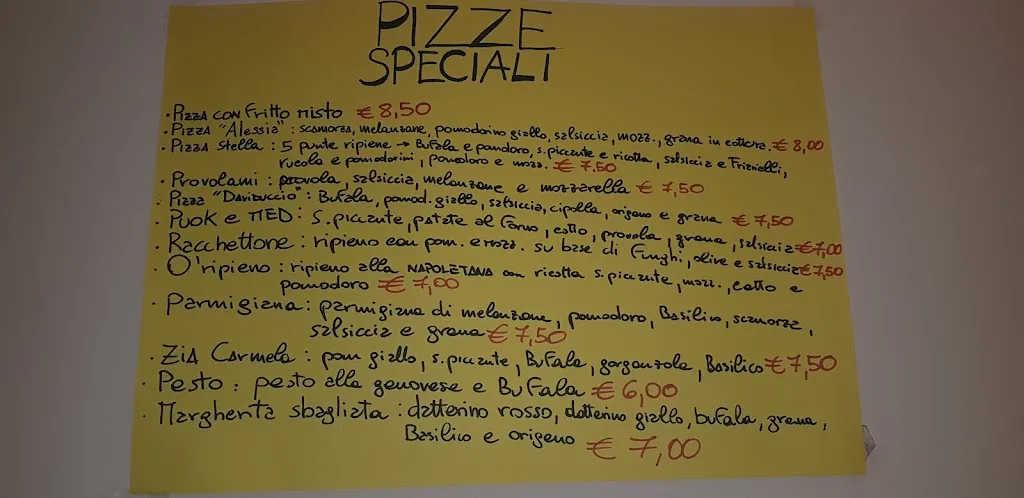 PIZZE
SPECIALI
· PIZZA CON Fritto misto € 8,50
· PIZZA "Alessia" : scamorza, melanzane, pomodorino giallo, salsiccia, mozz., grana in cottura. € 8,00
· PIZZA Stella : 5 punte ripiene → Bufala e pandoro, s.piccante e ricotta, salsiccia e Friarielli,
rucola e pomodorini, pomodoro e mozz. € 7,50
· Provolami : provola, salsiccia, melanzane e mozzarella € 7,50
· Pizza "Daviduccio" : Bufala, pomod. giallo, salsiccia, cipolla, origano e grana € 7,50
· PUOK e MED : S. piccante, patate al forno, cotto, provola, grana, salsiccia € 7,00
· Racchettone : ripieno con pom. e mozz. su base di Funghi, olive e salsiccia € 7,50
· O'ripieno : ripieno alla NAPOLETANA con ricotta s.piccante, mozz., cotto e
pomodoro € 7,00
· Parmigiana : parmigiana di melanzane, pomodoro, Basilico, scamorza,
salsiccia e grana € 7,50
· ZIA Carmela : pom giallo, s.piccante, BuFala, gorgonzola, Basilico € 7,50
· Pesto : pesto alla genovese e BuFala € 6,00
· Margherita sbagliata : datterino rosso, datterino giallo, bufala, grana,
Basilico e origano € 7,00